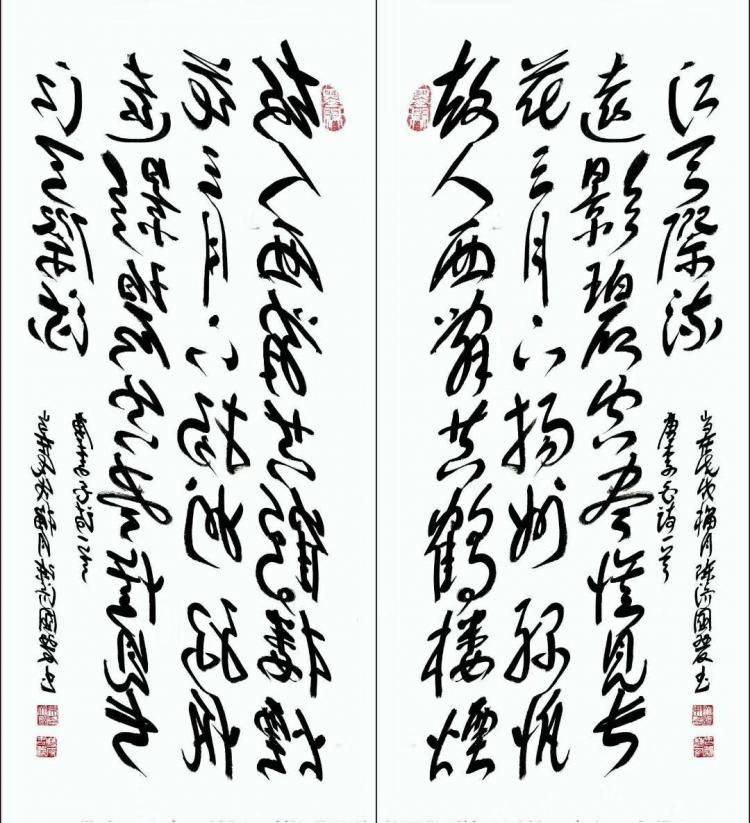 故人西辭黃鶴樓煙
花三月下揚州孤帆
遠影碧空盡惟見長
江天際流
唐李白詩一首
故人西辭黃鶴樓煙
花三月下揚州孤帆
遠影碧空盡惟見長
江天際流
唐李白詩一首